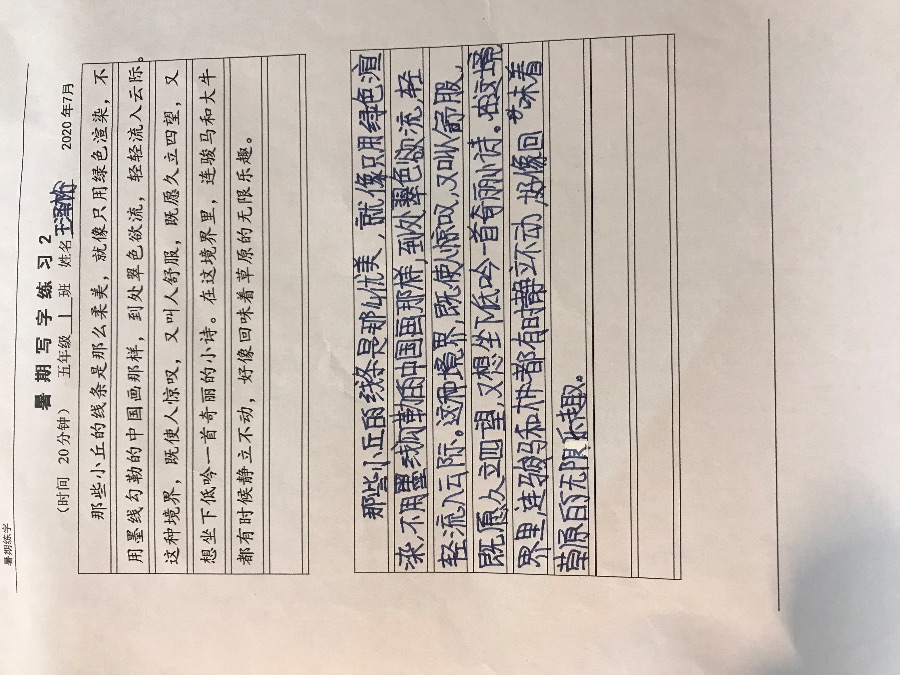 暑期练字
暑 期 写 字 练 习 2
（时间 20 分钟） 五年级 1 班 姓名 2020 年7月
那些小丘的线条是那么柔美，就像只用绿色渲染，不
用墨线勾勒的中国画那样，到处翠色欲流，轻轻流入云际。
这种境界，既使人惊叹，又叫人舒服，既愿久立四望，又
想坐下低吟一首奇丽的小诗。在这境界里，连骏马和大牛
都有时候静立不动，好像回味着草原的无限乐趣。
那些小丘的线条是那么优美，就像只用绿色渲
染，不用墨线的中国画那样，到处翠色欲流，轻
轻流入云际。这种境界，既使人惊叹，又叫人舒服，
既愿久立四望，又想坐下低吟一首奇丽小诗。在这境
界里，连骏马和大牛都有时静立不动，好像回味着
草原的无限乐趣。